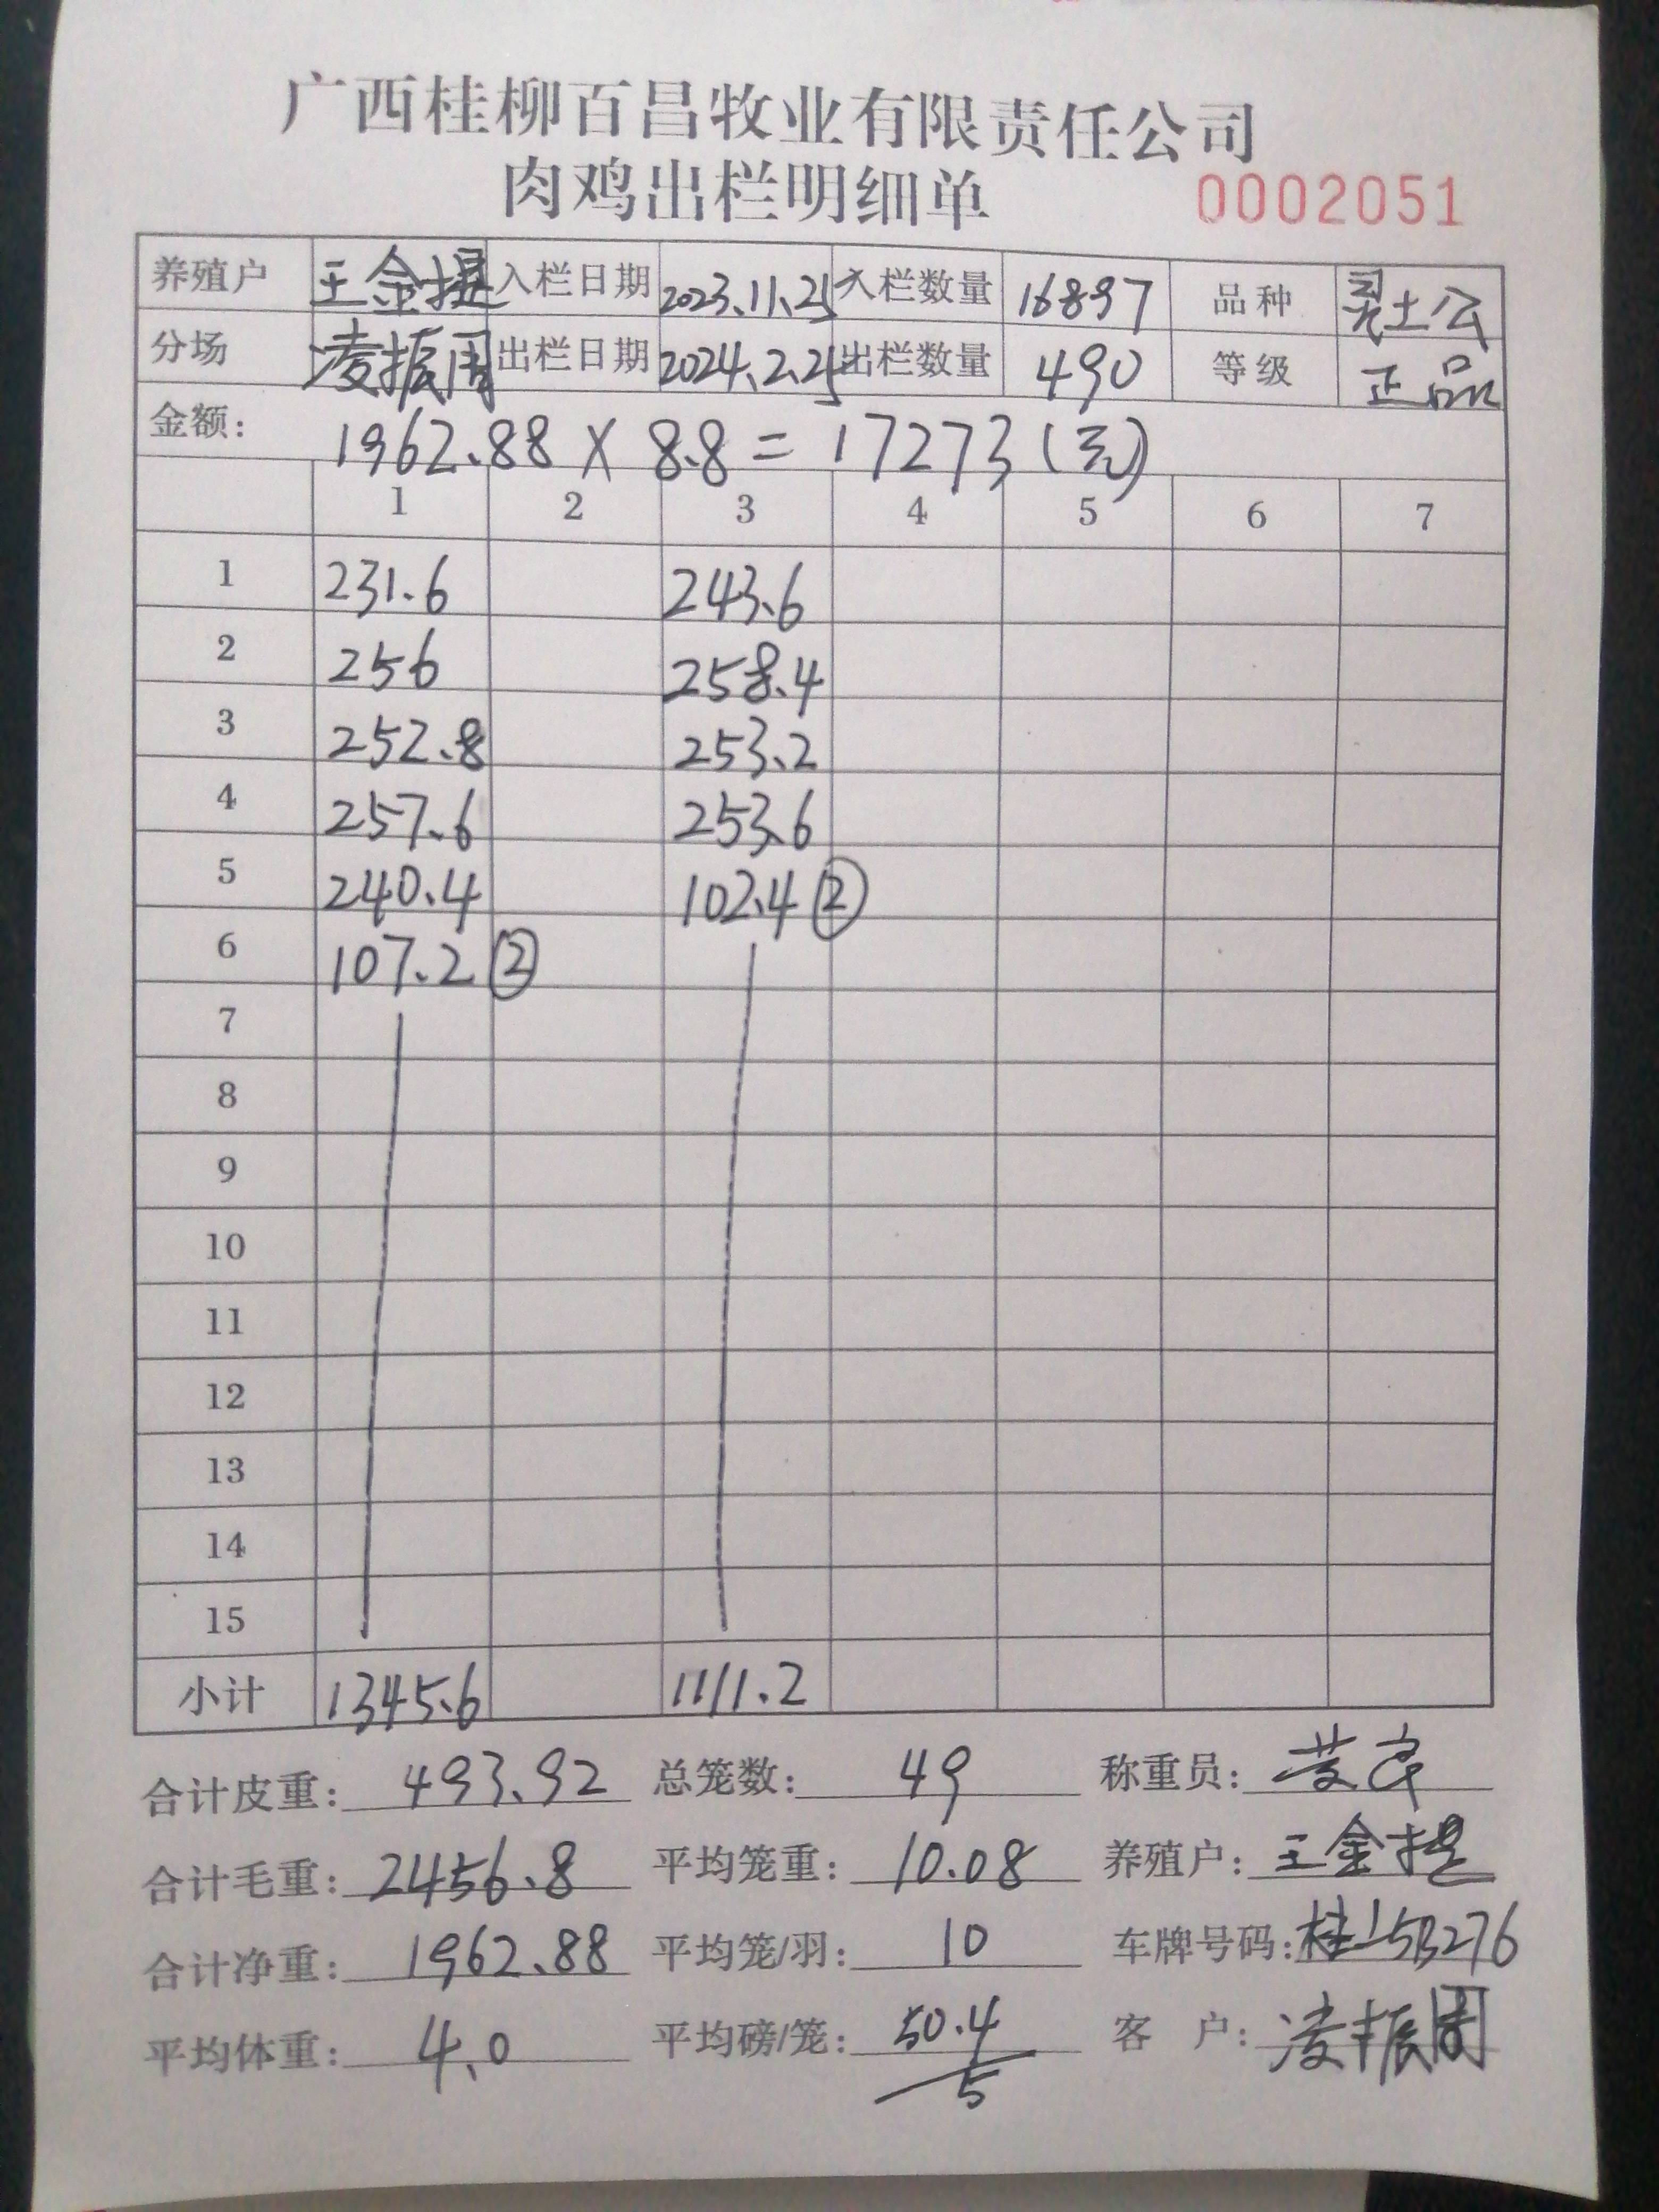 广西桂柳百昌牧业有限责任公司
肉鸡出栏明细单 0002051
养殖户 王金提 入栏日期 2023.11.25 入栏数量 16897 品种 灵土公
分场 凌振周 出栏日期 2024.2.25 出栏数量 490 等级 正品
金额: 1962.88 X 8.8 = 17273 (元)
1 2 3 4 5 6 7
1 231.6 243.6
2 256 258.4
3 252.8 253.2
4 257.6 253.6
5 240.4 102.4 ②
6 107.2 ②
7
8
9
10
11
12
13
14
15
小计 1345.6 1111.2
合计皮重: 493.92 总笼数: 49 称重员:
合计毛重: 2456.8 平均笼重: 10.08 养殖户: 王金提
合计净重: 1962.88 平均笼/羽: 10 车牌号码:
平均体重: 4.0 平均磅/笼: 50.4/5 客户: 凌振周